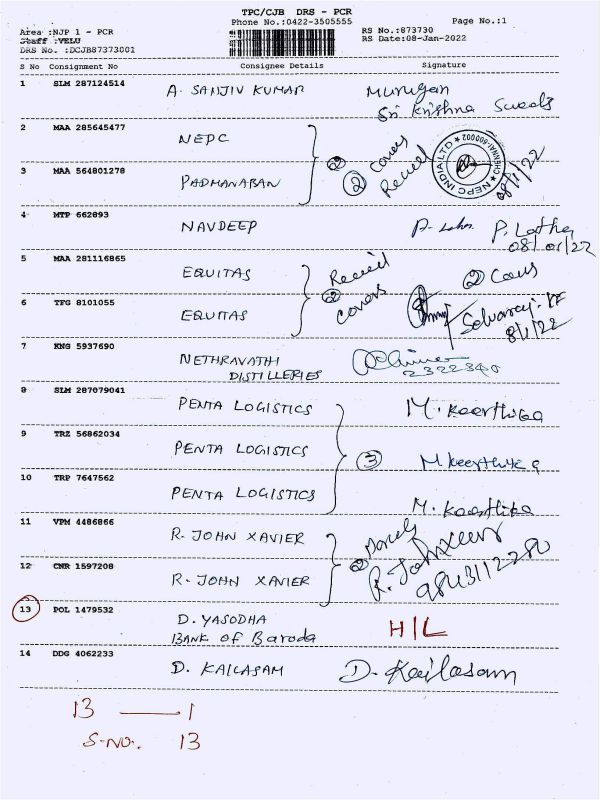 TPC/CJB DRS - PCR
Phone No.:0422-3505555 Page No.:1
Area :NJP 1 - PCR RS No.:873730
Staff :VELU RS Date:08-Jan-2022
DRS No. :DCJB87373001
S No Consignment No Consignee Details Signature
1 SLM 287124514 A. SANJIV KUMAR Murugan
Sri Krishna Sweets
2 MAA 285645477 NEPC
2 Covers
Received
NEPC INDIA LTD CHENNAI-600002
08/1/22
3 MAA 564801278 PADMANABAN
4 MTP 662893 NAVDEEP P. Latha
08/01/22
5 MAA 281116865 EQUITAS Received
2 Covers
6 TFG 8101055 EQUITAS Selvaraj
8/1/22
7 KNG 5937690 NETHRAVATHI
DISTILLERIES 2322340
8 SLM 287079041 PENTA LOGISTICS M. Keerthika
9 TRZ 56862034 PENTA LOGISTICS 3 M Keerthika
10 TRP 7647562 PENTA LOGISTICS M. Keerthika
11 VPM 4486866 R. JOHN XAVIER 2
R. John Xavier
9843112280
12 CNR 1597208 R. JOHN XAVIER
13 POL 1479532 D. YASODHA
BANK OF Baroda H/L
14 DDG 4062233 D. KAILASAM D. Kailasam
13 — 1
S.NO. 13